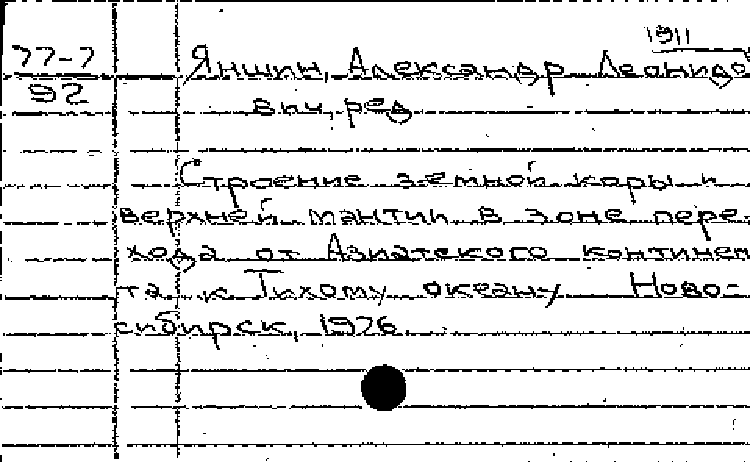 1911
77-7 Яншин, Александр Леонидо-
92 вич, ред.
Строение земной коры и
верхней мантии в зоне пере-
хода от Азиатского континен
та к Тихому океану Ново-
сибирск, 1976.